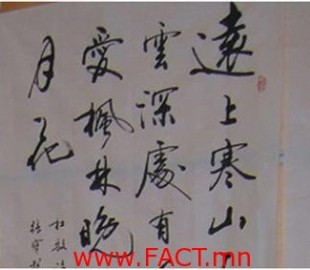 遠上寒山
雲深處有
愛楓林晚
月花
杜牧
www.FACT.mn